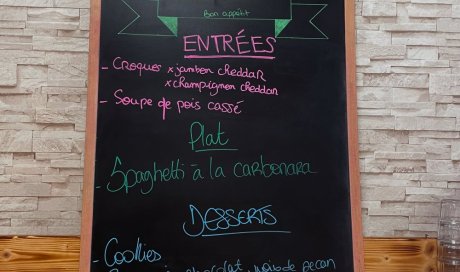 Bon appétit
ENTRÉES
- Croques x jambon cheddar
x champignon cheddar
- Soupe de pois cassé
Plat
- Spaghetti à la carbonara
DESSERTS
- Cookies
chocolat, noix de pecan